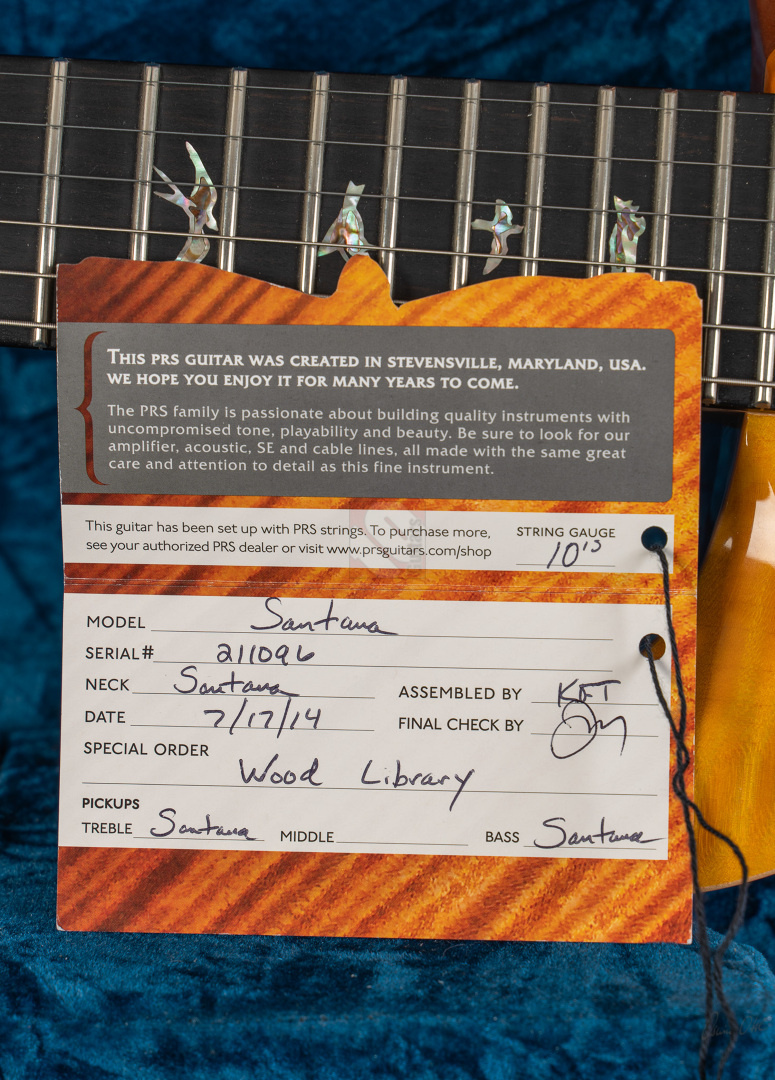 THIS PRS GUITAR WAS CREATED IN STEVENSVILLE, MARYLAND, USA.
WE HOPE YOU ENJOY IT FOR MANY YEARS TO COME.
The PRS family is passionate about building quality instruments with
uncompromised tone, playability and beauty. Be sure to look for our
amplifier, acoustic, SE and cable lines, all made with the same great
care and attention to detail as this fine instrument.
This guitar has been set up with PRS strings. To purchase more,
see your authorized PRS dealer or visit www.prsguitars.com/shop
STRING GAUGE
10's
MODEL Santana
SERIAL# 211096
NECK Santana
ASSEMBLED BY KFT
DATE 7/17/14
FINAL CHECK BY
SPECIAL ORDER
Wood Library
PICKUPS
TREBLE Santana MIDDLE BASS Santana